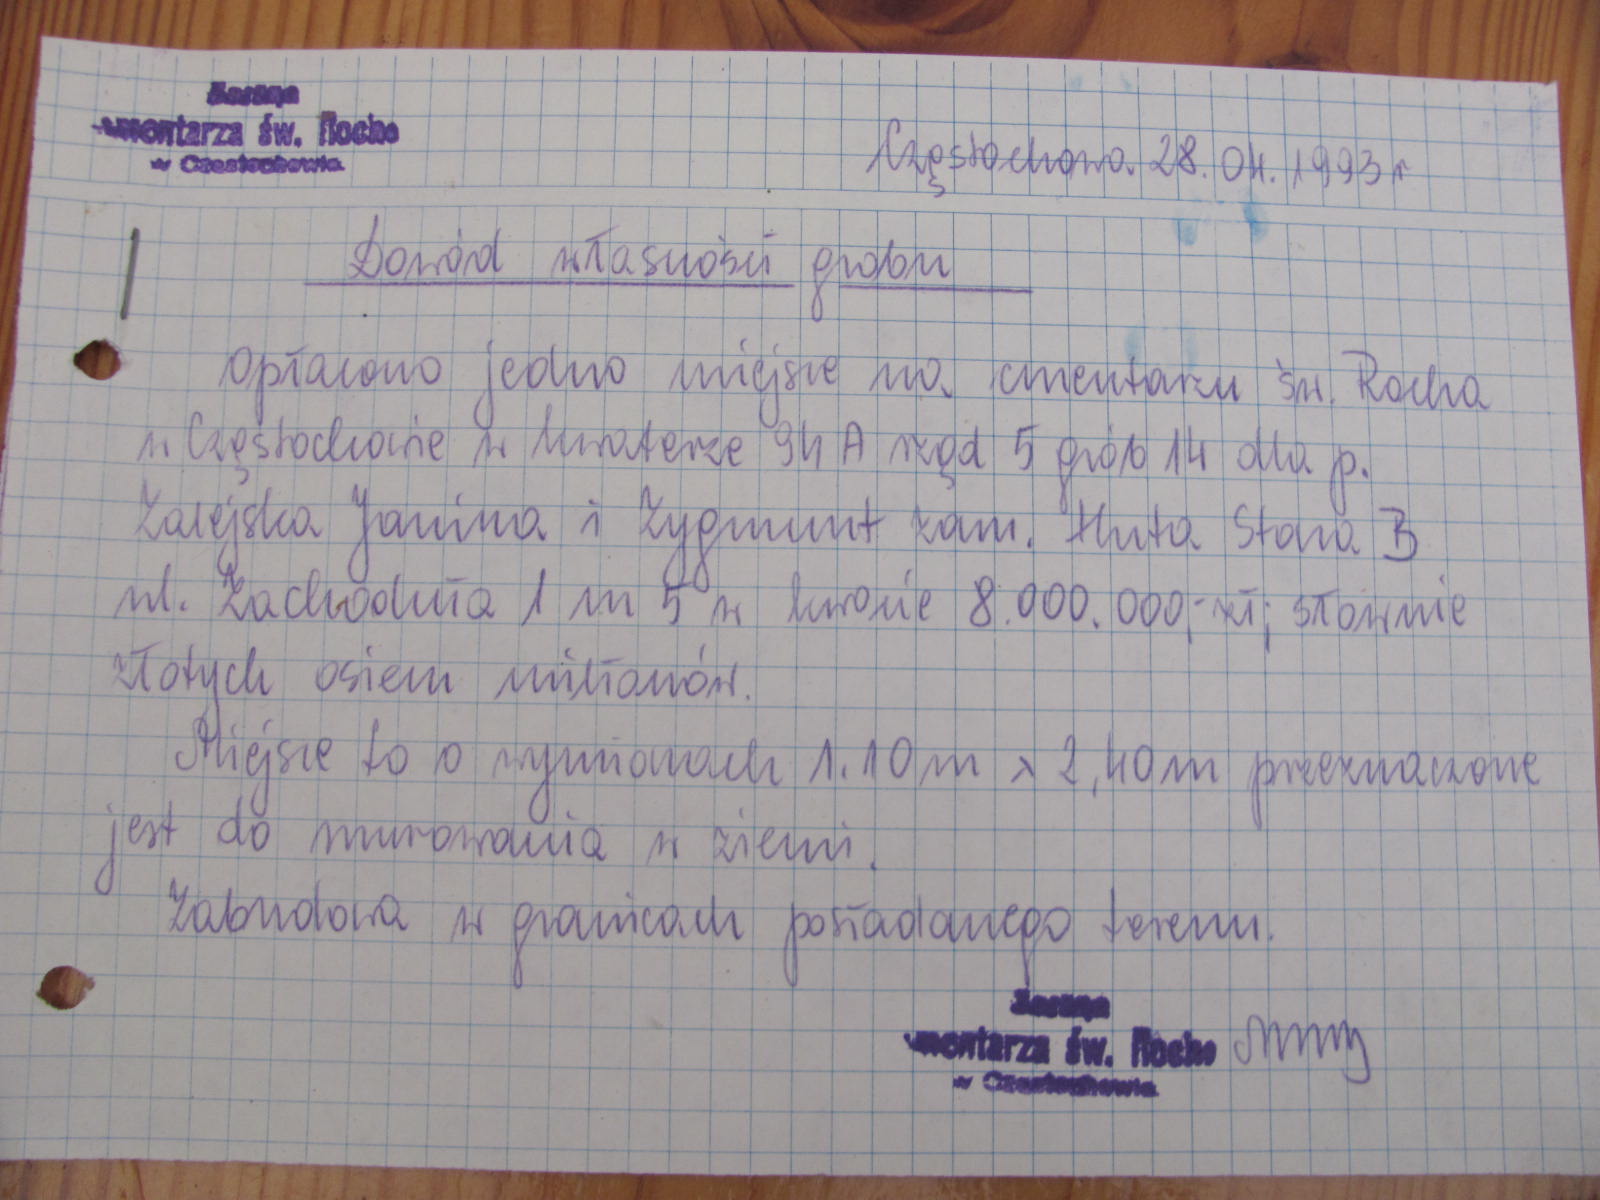 Zarząd
cmentarza św. Rocha
w Częstochowie
Częstochowa 28.04.1993 r
Dowód własności grobu
Opłacono jedno miejsce na cmentarzu św. Rocha
w Częstochowie w kwaterze 94 A rząd 5 grób 14 dla p.
Zalejska Janina i Zygmunt zam. Huta Stara B
ul. Zachodnia 1 m 5 w kwocie 8.000.000,- zł; słownie
złotych osiem milionów.
Miejsce to o wymiarach 1.10 m x 2,40 m przeznaczone
jest do murowania w ziemi.
Zabudowa w granicach posiadanego terenu.
Zarząd
cmentarza św. Rocha
w Częstochowie